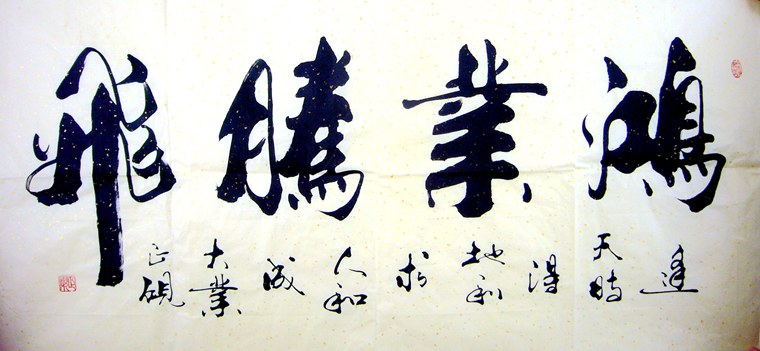 鴻業騰飛
逢天時得地利求人和成大業
正硯